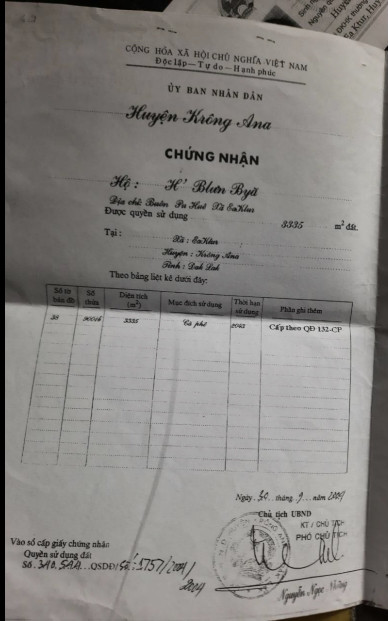 CỘNG HÒA XÃ HỘI CHỦ NGHĨA VIỆT NAM
Độc lập - Tự do - Hạnh phúc
ỦY BAN NHÂN DÂN
Huyện Krông Ana
CHỨNG NHẬN
Hộ : H' Blưn Byă
Địa chỉ: Buôn Pu Huê Xã EaKtur
Được quyền sử dụng 3335 m² đất.
Tại : Xã : EaKtur
Huyện : Krông Ana
Tỉnh : Dak Lak
Theo bảng liệt kê dưới đây:
Số tờ bản đồ Số thửa Diện tích (m²) Mục đích sử dụng Thời hạn sử dụng Phần ghi thêm
38 3335 Cà phê 2043 Cấp theo QĐ 132-CP
Ngày 30 tháng 9 năm 2004
Chủ tịch UBND
KT / CHỦ TỊCH
PHÓ CHỦ TỊCH
Vào sổ cấp giấy chứng nhận
Quyền sử dụng đất
Số QSDĐ/
Nguyễn Ngọc